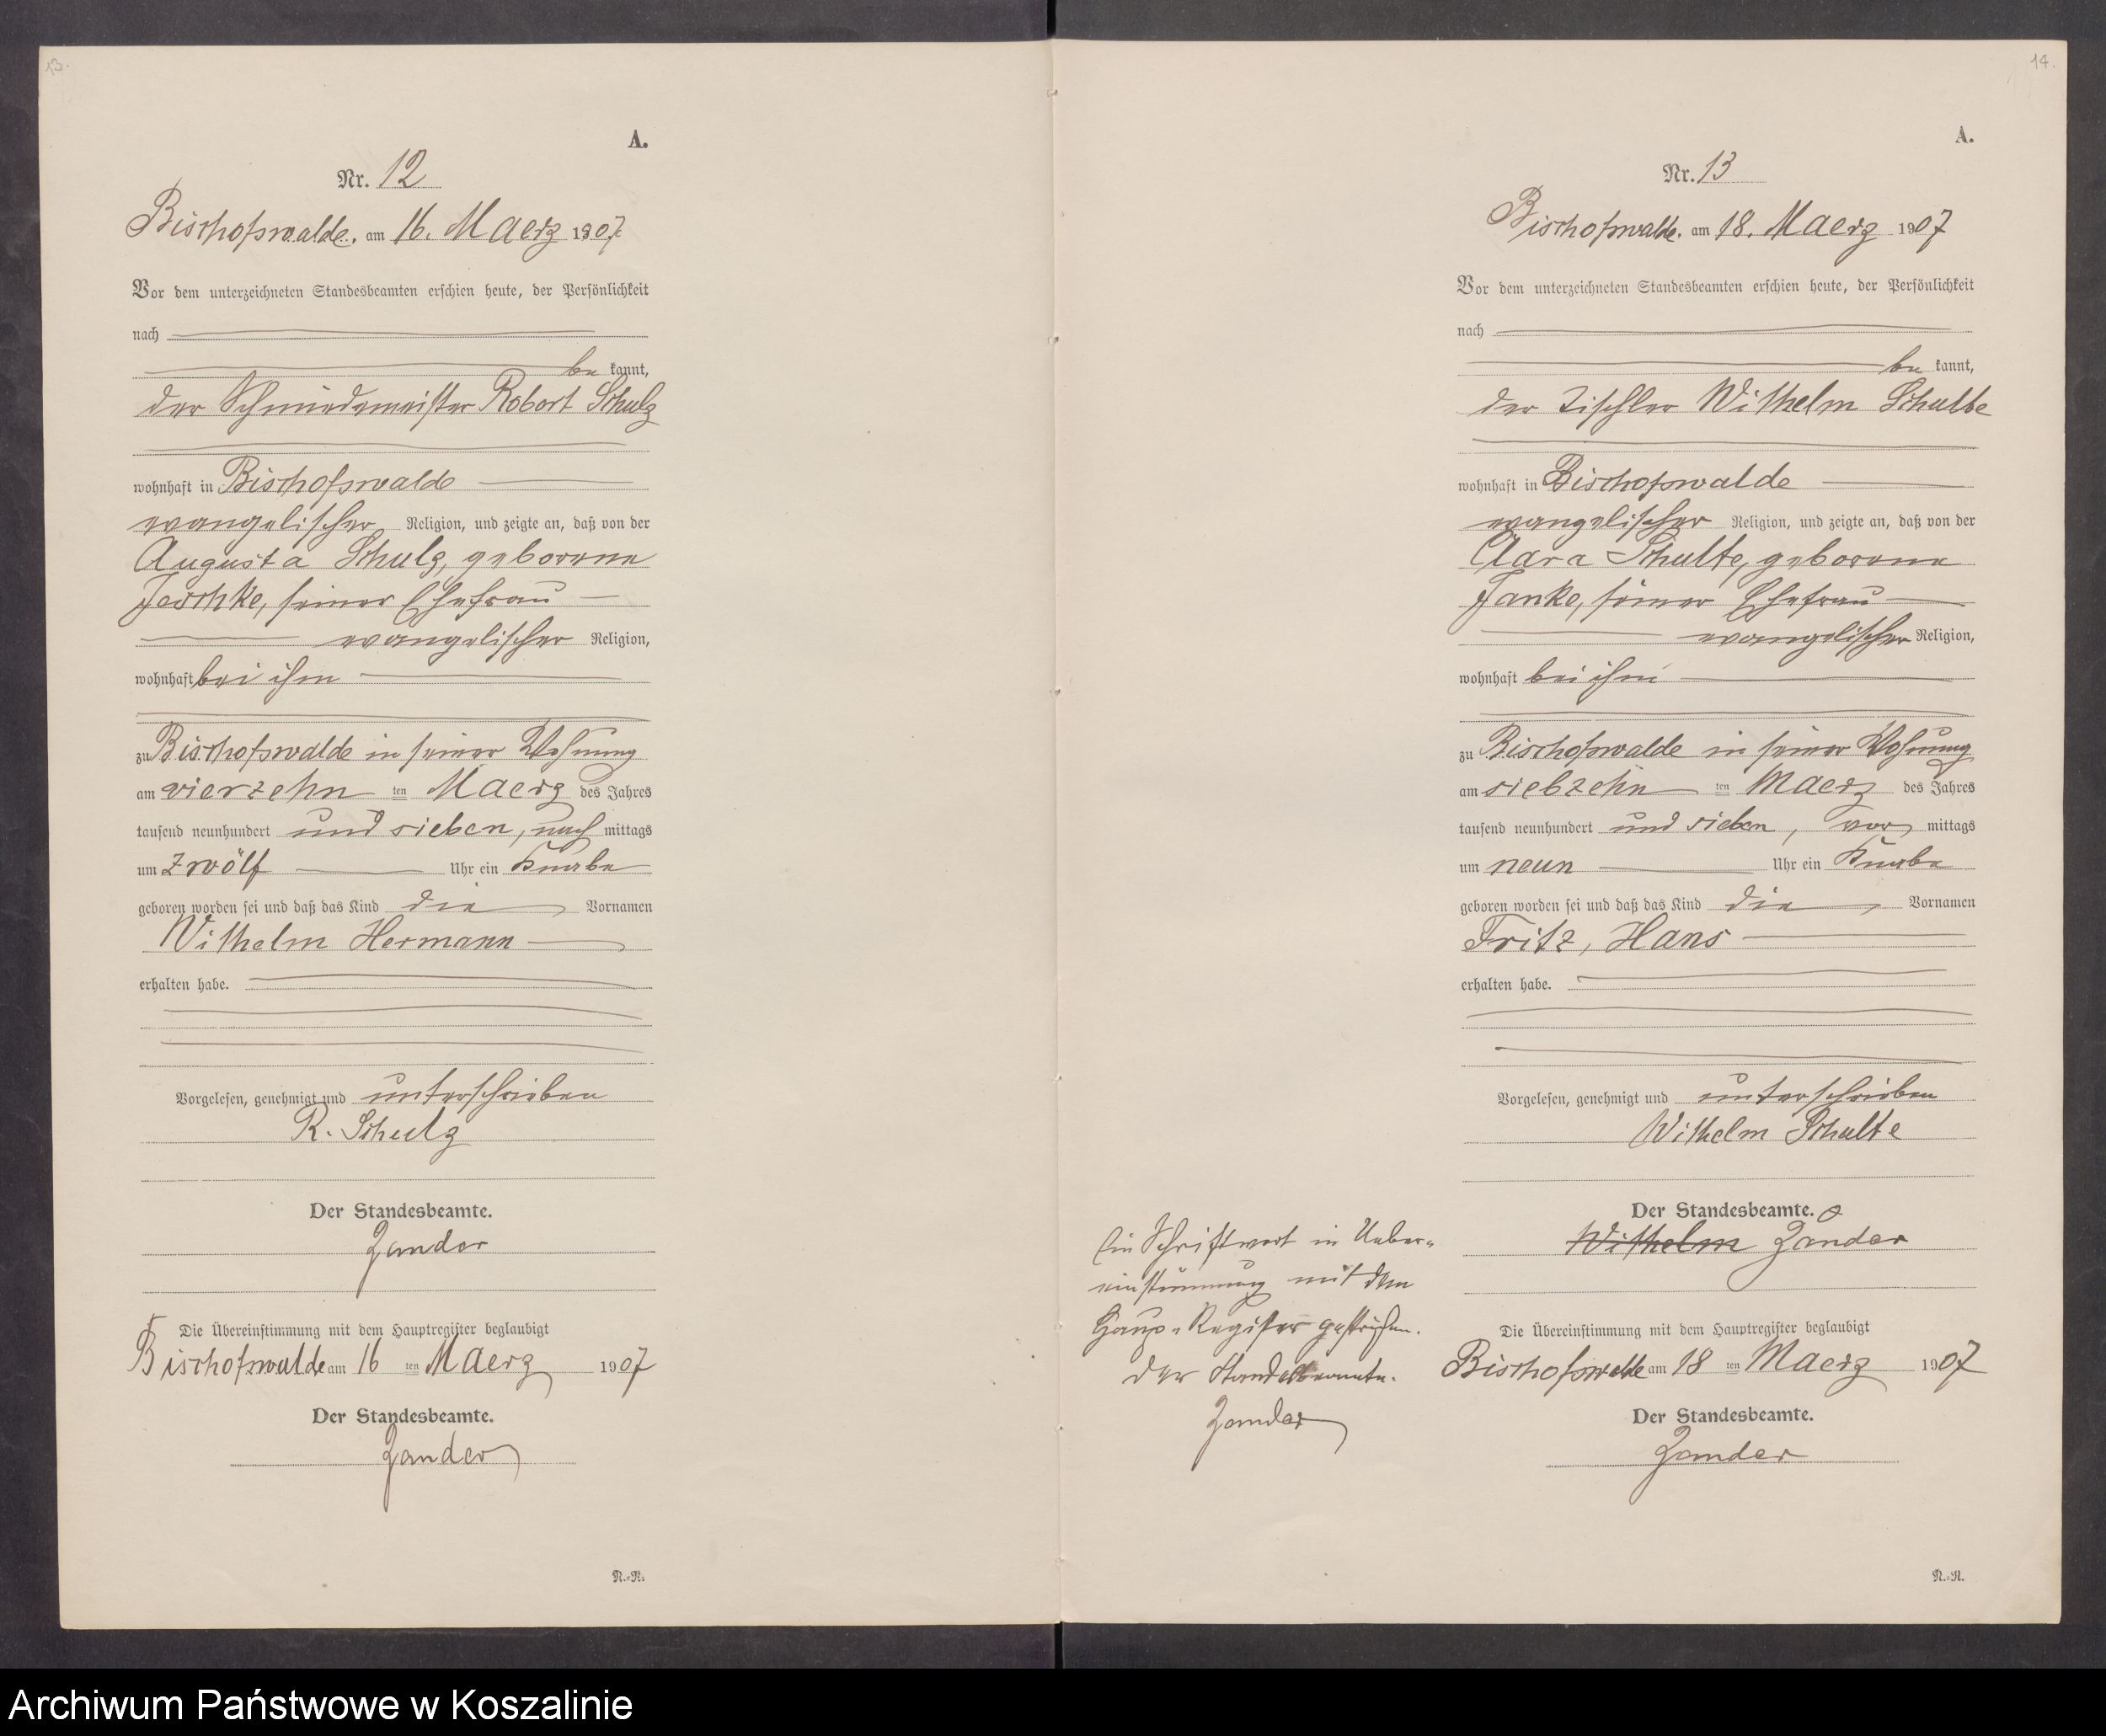 13.
A.
Nr. 12
Bischofswalde, am 16. Maerz 1907.
Vor dem unterzeichneten Standesbeamten erschien heute, der Persönlichkeit
nach
be kannt,
der Schmiedemeister Robert Schulz
wohnhaft in Bischofswalde
evangelischer Religion, und zeigte an, daß von der
Augusta Schulz, geborene
Jeschke, seiner Ehefrau
evangelischer Religion,
wohnhaft bei ihm
zu Bischofswalde in seiner Wohnung
am vierzehn ten Maerz des Jahres
tausend neunhundert und sieben, nach mittags
um zwölf Uhr ein Knabe
geboren worden sei und daß das Kind die Vornamen
Wilhelm Hermann
erhalten habe.
Vorgelesen, genehmigt und unterschrieben
R. Schulz
Der Standesbeamte.
Zander
Die Übereinstimmung mit dem Hauptregister beglaubigt
Bischofswalde am 16 ten Maerz 1907
Der Standesbeamte.
Zander
N.=R.
14.
A.
Nr. 13
Bischofswalde. am 18. Maerz 1907
Vor dem unterzeichneten Standesbeamten erschien heute, der Persönlichkeit
nach
be kannt,
der Tischler Wilhelm Schulte
wohnhaft in Bischofswalde
evangelischer Religion, und zeigte an, daß von der
Clara Schulte, geborene
Janke, seiner Ehefrau
evangelischer Religion,
wohnhaft bei ihm
zu Bischofswalde in seiner Wohnung
am siebzehn ten Maerz des Jahres
tausend neunhundert und sieben, vor mittags
um neun Uhr ein Knabe
geboren worden sei und daß das Kind die Vornamen
Fritz, Hans
erhalten habe.
Vorgelesen, genehmigt und unterschrieben
Wilhelm Schulte
Der Standesbeamte.
Wilhelm Zander
Ein Schriftwort in Ueber=
einstimmung mit dem
Haup=Register gestrichen.
Der Standesbeamte.
Zander
Die Übereinstimmung mit dem Hauptregister beglaubigt
Bischofswalde am 18 ten Maerz 1907
Der Standesbeamte.
Zander
N.=R.
Archiwum Państwowe w Koszalinie